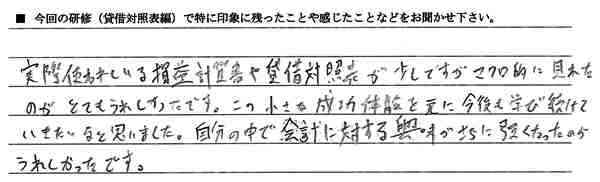 ■ 今回の研修（貸借対照表編）で特に印象に残ったことや感じたことなどをお聞かせ下さい。
実際使われている損益計算書や貸借対照表が少しですがマクロ的に見れた
のがとてもうれしかったです。この小さな成功体験を元に今後も学び続けて
いきたいなと思いました。自分の中で会計に対する興味がさらに強くなったのが
うれしかったです。